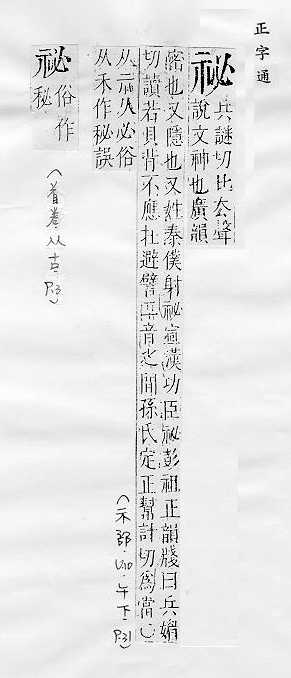 正字通
祕 兵謎切比去聲
說文神也廣韻
密也又隱也又姓秦僕射祕宜漢功臣祕彭祖正韻牋曰兵媚
切讀若貝背不應扗避譬二音之間孫氏定正幫計切爲當〇
从示从必俗
从禾作秘誤
(禾部.U10.午下.P31)
祕 俗作
秘
(首卷从古.P3)